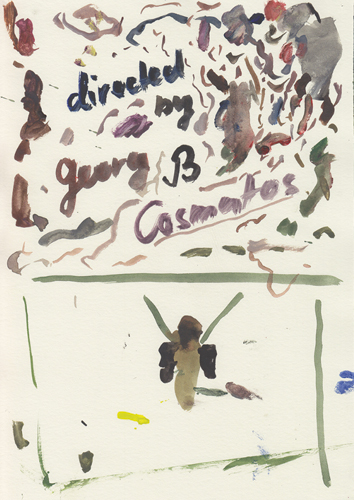 directed
by
georg B
Cosmatos